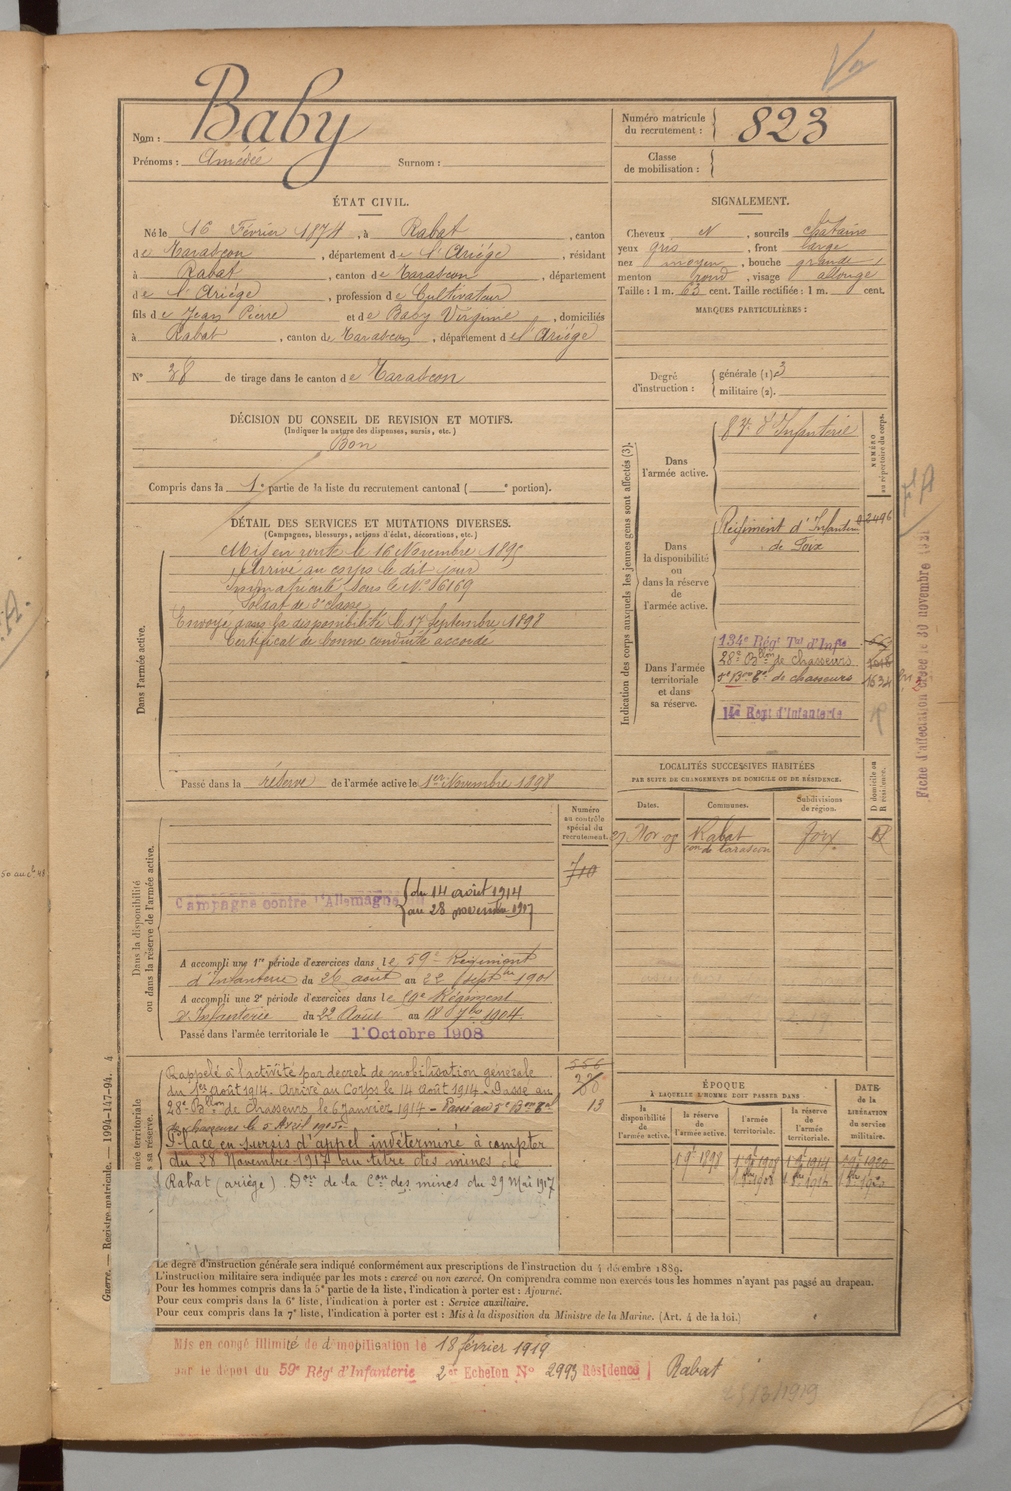 Nom : Baby
Prénoms : Amédée Surnom :
Numéro matricule du recrutement : 823
Classe de mobilisation :
ÉTAT CIVIL.
Né le 16 Février 1874, à Rabat, canton
de Tarascon, département de l'Ariége, résidant
à Rabat, canton de Tarascon, département
de l'Ariége, profession de Cultivateur
fils de Jean Pierre et de Baby Virginie, domiciliés
à Rabat, canton de Tarascon, département de l'Ariége
N° 38 de tirage dans le canton de Tarascon
SIGNALEMENT.
Cheveux N, sourcils chatains
yeux gris, front large
nez moyen, bouche grande
menton rond, visage allongé
Taille : 1 m. 63 cent. Taille rectifiée : 1 m. cent.
MARQUES PARTICULIÈRES :
Degré d'instruction : générale (1) 3
militaire (2).
DÉCISION DU CONSEIL DE REVISION ET MOTIFS.
(Indiquer la nature des dispenses, sursis, etc.)
Bon
Compris dans la 1e partie de la liste du recrutement cantonal ( e portion).
DÉTAIL DES SERVICES ET MUTATIONS DIVERSES.
(Campagnes, blessures, actions d'éclat, décorations, etc.)
Dans l'armée active.
Mis en route le 16 Novembre 1895
Arrivé au corps le dit jour
Immatriculé sous le N° 16169
Soldat de 2e classe
Envoyé dans la disponibilité le 17 Septembre 1898
Certificat de bonne conduite accordé
Passé dans la réserve de l'armée active le 1er Novembre 1898
Indication des corps auxquels les jeunes gens sont affectés (3).
NUMÉRO au répertoire du corps.
Dans l'armée active.
83e d'Infanterie
Dans la disponibilité ou dans la réserve de l'armée active.
Régiment d'Infanterie 2496
de Foix
Dans l'armée territoriale et dans sa réserve.
134e Régt Tal d'Infie
28e Bllon de chasseurs
5e Bon Tal de chasseurs 1634
14e Regt d'Infanterie
Fiche d'affectation créée le 30 novembre 1931
LOCALITÉS SUCCESSIVES HABITÉES
PAR SUITE DE CHANGEMENTS DE DOMICILE OU DE RÉSIDENCE.
Dates. Communes. Subdivisions de région. D domicile ou R résidence.
27 Nov 98 Rabat Foix R
con de Tarascon
Numéro au contrôle spécial du recrutement.
710
Dans la disponibilité ou dans la réserve de l'armée active.
Campagne contre l'Allemagne du 14 août 1914
au 28 novembre 1917
A accompli une 1re période d'exercices dans le 59e Régiment
d'Infanterie du 26 août au 22 Septbre 1901
A accompli une 2e période d'exercices dans le 59e Régiment
d'Infanterie du 22 Août au 18 7bre 1904.
Passé dans l'armée territoriale le 1 Octobre 1908
556
13
Rappelé à l'activité par decret de mobilisation générale
du 1er Août 1914. Arrivé au Corps le 14 août 1914 - Passé au
28e Bllon de Chasseurs, le 6 janvier 1914 - Passé au 5e Bon Tal
de chasseurs le 5 Avril 1915.
Placé en sursis d'appel indéterminé à compter
du 28 Novembre 1917 au titre des mines de
Rabat (ariége). Don de la Con des mines du 29 Mai 1917
ÉPOQUE
À LAQUELLE L'HOMME DOIT PASSER DANS
DATE de la LIBÉRATION du service militaire.
la disponibilité de l'armée active. la réserve de l'armée active. l'armée territoriale. la réserve de l'armée territoriale.
Le degré d'instruction générale sera indiqué conformément aux prescriptions de l'instruction du 4 décembre 1889.
L'instruction militaire sera indiquée par les mots : exercé ou non exercé. On comprendra comme non exercés tous les hommes n'ayant pas passé au drapeau.
Pour les hommes compris dans la 5e partie de la liste, l'indication à porter est : Ajourné.
Pour ceux compris dans la 6e liste, l'indication à porter est : Service auxiliaire.
Pour ceux compris dans la 7e liste, l'indication à porter est : Mis à la disposition du Ministre de la Marine. (Art. 4 de la loi.)
Guerre. — Registre matricule. — 1994-147-94. 4
Mis en congé illimité de démobilisation le 18 février 1919
par le dépot du 59e Régt d'Infanterie 2er Echelon N° 2993 Résidence Rabat